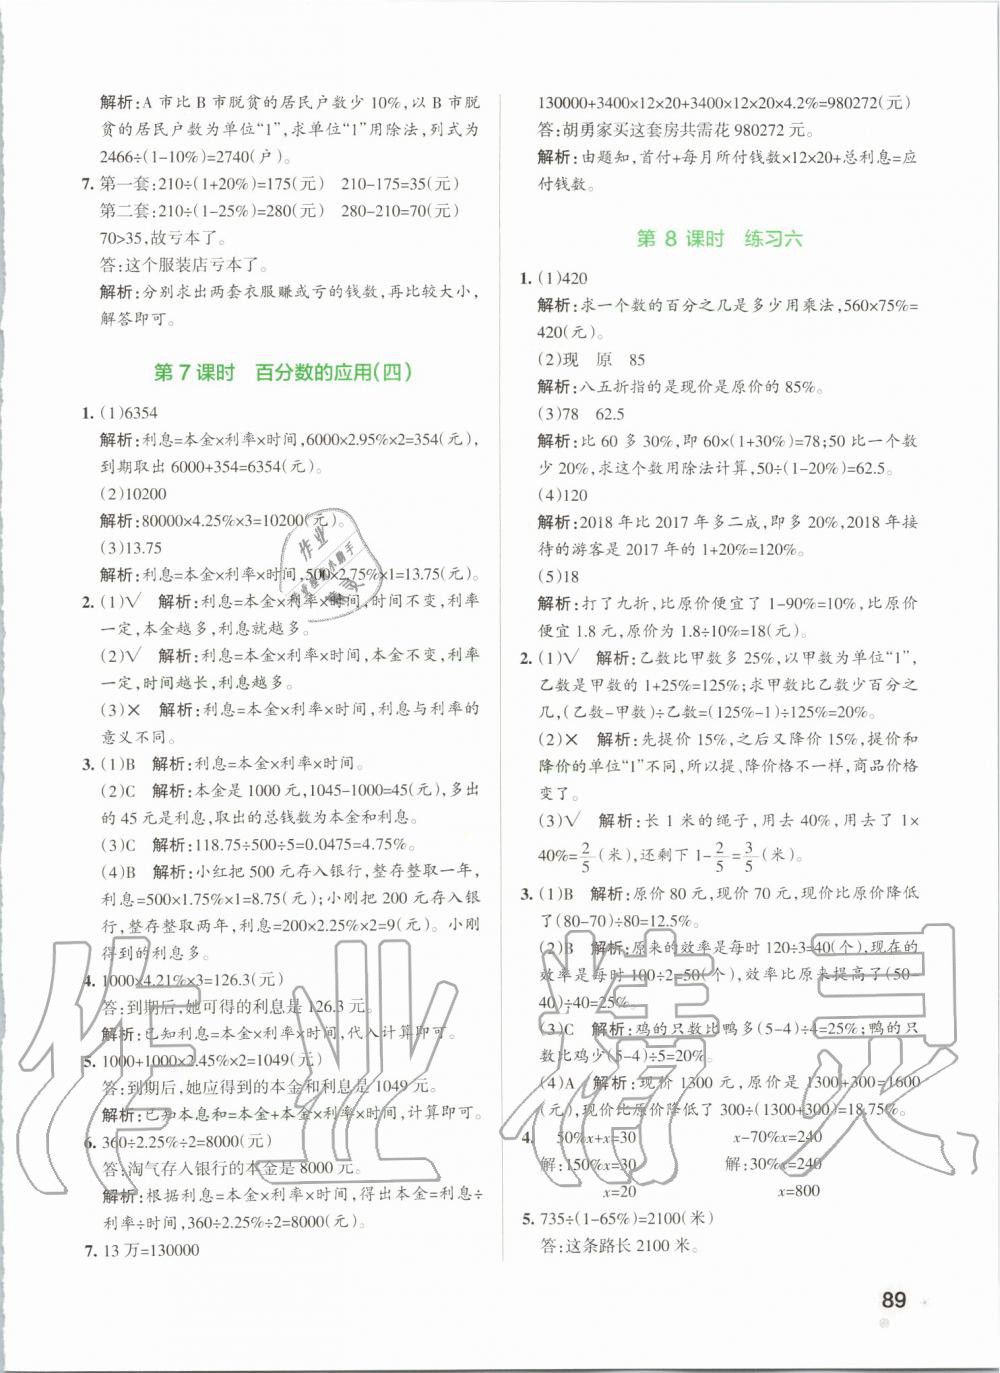 解析:A 市比 B 市脱贫的居民户数少 10%,以 B 市脱
贫的居民户数为单位“1”,求单位“1”用除法,列式为
2466÷(1-10%)=2740(户)。
7. 第一套:210÷(1+20%)=175(元) 210-175=35(元)
第二套:210÷(1-25%)=280(元) 280-210=70(元)
70>35,故亏本了。
答:这个服装店亏本了。
解析:分别求出两套衣服赚或亏的钱数,再比较大小,
解答即可。
第 7 课时 百分数的应用(四)
1. (1)6354
解析:利息=本金×利率×时间,6000×2.95%×2=354(元),
到期取出 6000+354=6354(元)。
(2)10200
解析:80000×4.25%×3=10200(元)。
(3)13.75
解析:利息=本金×利率×时间,500×2.75%×1=13.75(元)。
2. (1)√ 解析:利息=本金×利率×时间,时间不变,利率
一定,本金越多,利息就越多。
(2)√ 解析:利息=本金×利率×时间,本金不变,利率
一定,时间越长,利息越多。
(3)× 解析:利息=本金×利率×时间,利息与利率的
意义不同。
3. (1)B 解析:利息=本金×利率×时间。
(2)C 解析:本金是 1000 元,1045-1000=45(元),多出
的 45 元是利息,取出的总钱数为本金和利息。
(3)C 解析:118.75÷500÷5=0.0475=4.75%。
(4)B 解析:小红把 500 元存入银行,整存整取一年,
利息=500×1.75%×1=8.75(元);小刚把 200 元存入银
行,整存整取两年,利息=200×2.25%×2=9(元)。小刚
得到的利息多。
4. 1000×4.21%×3=126.3(元)
答:到期后,她可得的利息是 126.3 元。
解析:已知利息=本金×利率×时间,代入计算即可。
5. 1000+1000×2.45%×2=1049(元)
答:到期后,她应得到的本金和利息是 1049 元。
解析:已知本息和=本金+本金×利率×时间,计算即可。
6. 360÷2.25%÷2=8000(元)
答:淘气存入银行的本金是 8000 元。
解析:根据利息=本金×利率×时间,得出本金=利息÷
利率÷时间,360÷2.25%÷2=8000(元)。
7. 13 万=130000
130000+3400×12×20+3400×12×20×4.2%=980272(元)
答:胡勇家买这套房共需花 980272 元。
解析:由题知,首付+每月所付钱数×12×20+总利息=应
付钱数。
第 8 课时 练习六
1. (1)420
解析:求一个数的百分之几是多少用乘法,560×75%=
420(元)。
(2)现 原 85
解析:八五折指的是现价是原价的 85%。
(3)78 62.5
解析:比 60 多 30%,即 60×(1+30%)=78;50 比一个数
少 20%,求这个数用除法计算,50÷(1-20%)=62.5。
(4)120
解析:2018 年比 2017 年多二成,即多 20%,2018 年接
待的游客是 2017 年的 1+20%=120%。
(5)18
解析:打了九折,比原价便宜了 1-90%=10%,比原价
便宜 1.8 元,原价为 1.8÷10%=18(元)。
2. (1)√ 解析:乙数比甲数多 25%,以甲数为单位“1”,
乙数是甲数的 1+25%=125%;求甲数比乙数少百分之
几,(乙数-甲数)÷乙数=(125%-1)÷125%=20%。
(2)× 解析:先提价 15%,之后又降价 15%,提价和
降价的单位“1”不同,所以提、降价格不一样,商品价格
变了。
(3)√ 解析:长 1 米的绳子,用去 40%,即用了 1×
40%=2/5(米),还剩下 1-2/5=3/5(米)。
3. (1)B 解析:原价 80 元,现价 70 元,现价比原价降低
了(80-70)÷80=12.5%。
(2)B 解析:原来的效率是每时 120÷3=40(个),现在的
效率是每时 100÷2=50(个),效率比原来提高了(50-
40)÷40=25%。
(3)C 解析:鸡的只数比鸭多(5-4)÷4=25%;鸭的只
数比鸡少(5-4)÷5=20%。
(4)A 解析:现价 1300 元,原价是 1300+300=1600
(元),现价比原价降低了 300÷(1300+300)=18.75%。
4. 50%x+x=30 x-70%x=240
解:150%x=30 解:30%x=240
x=20 x=800
5. 735÷(1-65%)=2100(米)
答:这条路长 2100 米。
89
作业精灵